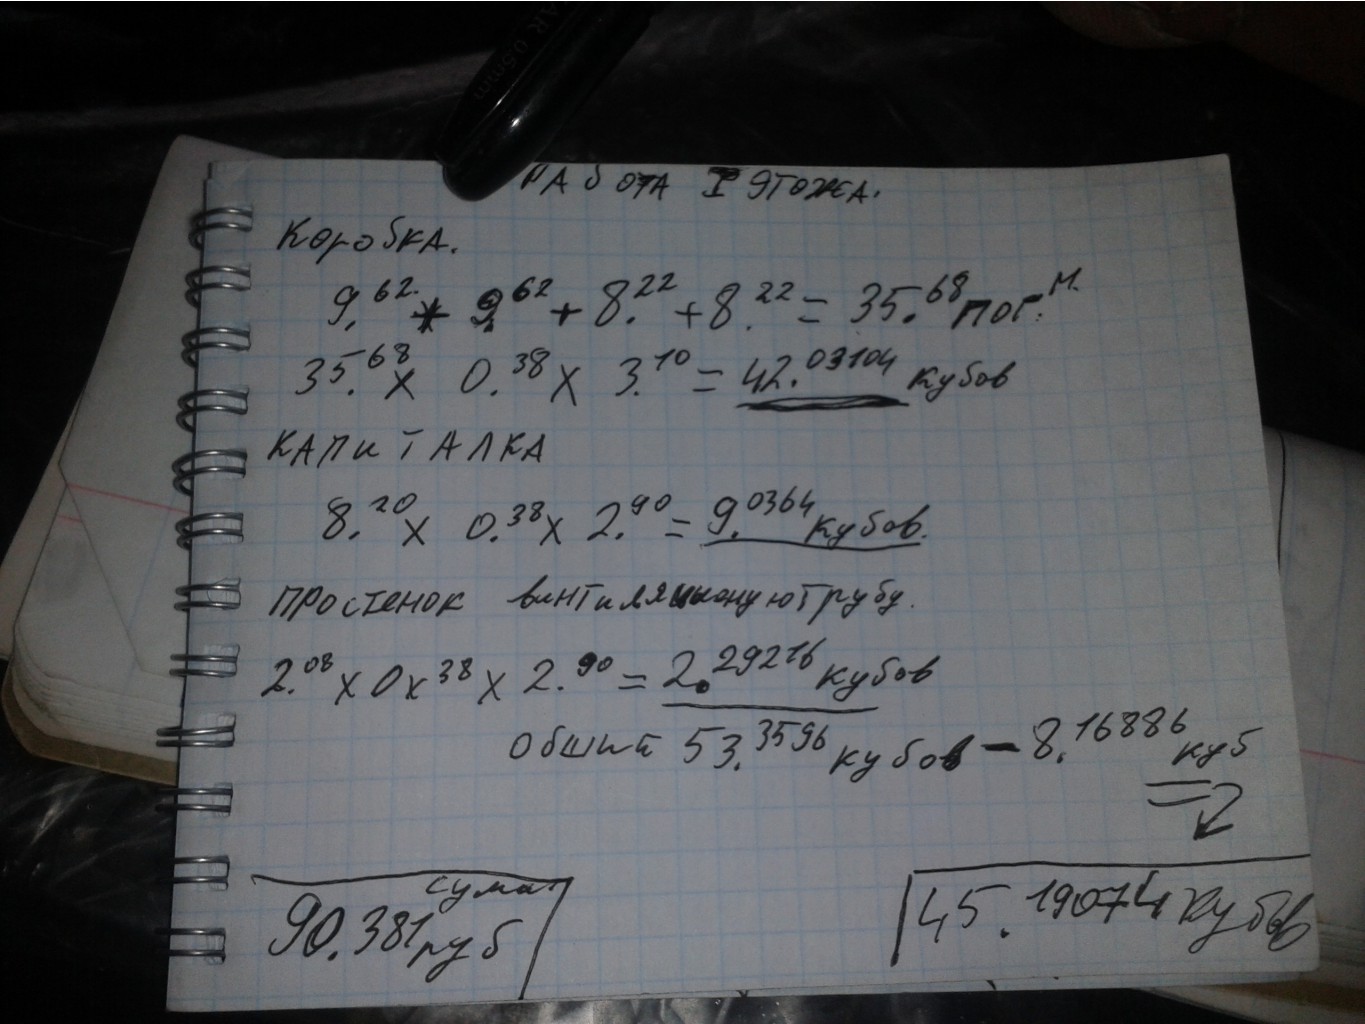 РАБОТА I ЭТОЖА.
Коробка.
9.62. + 9.62 + 8.22 + 8.22 = 35.68 пог.м.
35.68 х 0.38 х 3.10 = 42.03104 кубов
КАПИТАЛКА
8.20 х 0.38 х 2.90 = 9.0364 кубов.
простенок винтиляцыонуют трубу.
2.08 х 0х38 х 2.90 = 2.29216 кубов
обший 53.3596 кубов – 8.16886 куб
сума
90.381 руб
45.19074 кубов